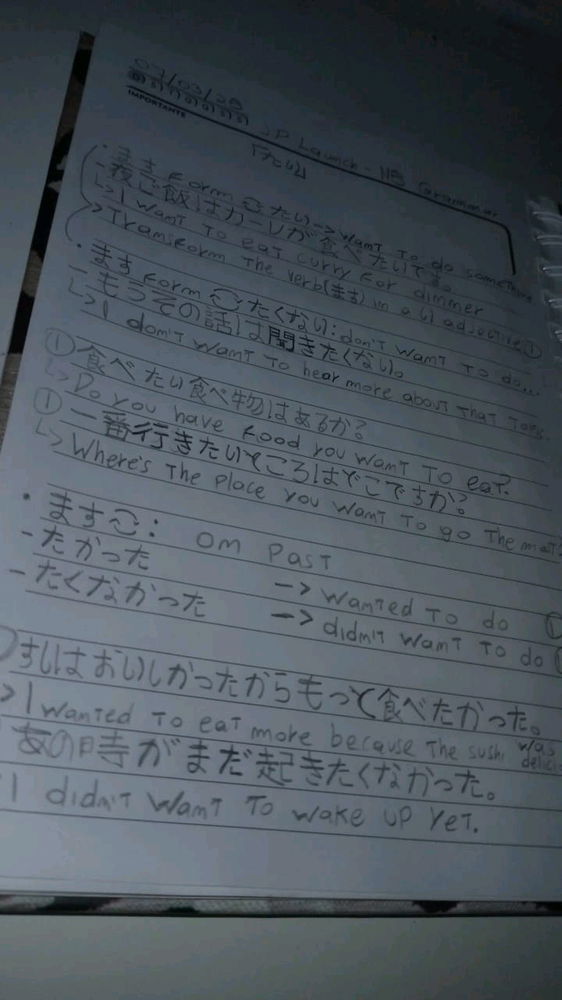 07/03/28
IMPORTANTE
JP Launch - N5 Grammar
「たい」
・ます form たい -> want to do something
- 夜ご飯はカーレが食べたいです。
↳ I want to eat curry for dinner
> Transform the verb(ます) in a い adjective ①
・ます form たくない: don't want to do...
- もうその話は聞きたくない。
↳ I don't want to hear more about that
① 食べたい食べ物はあるか?
↳ Do you have food you want to eat?
① 一番行きたいところはどこですか?
↳ Where's the place you want to go the most?
・ます: on past
- たかった -> wanted to do
- たくなかった -> didn't want to do
すしはおいしかったからもって食べたかった。
> I wanted to eat more because the sushi was
あの時がまだ起きたくなかった。
I didn't want to wake up yet.